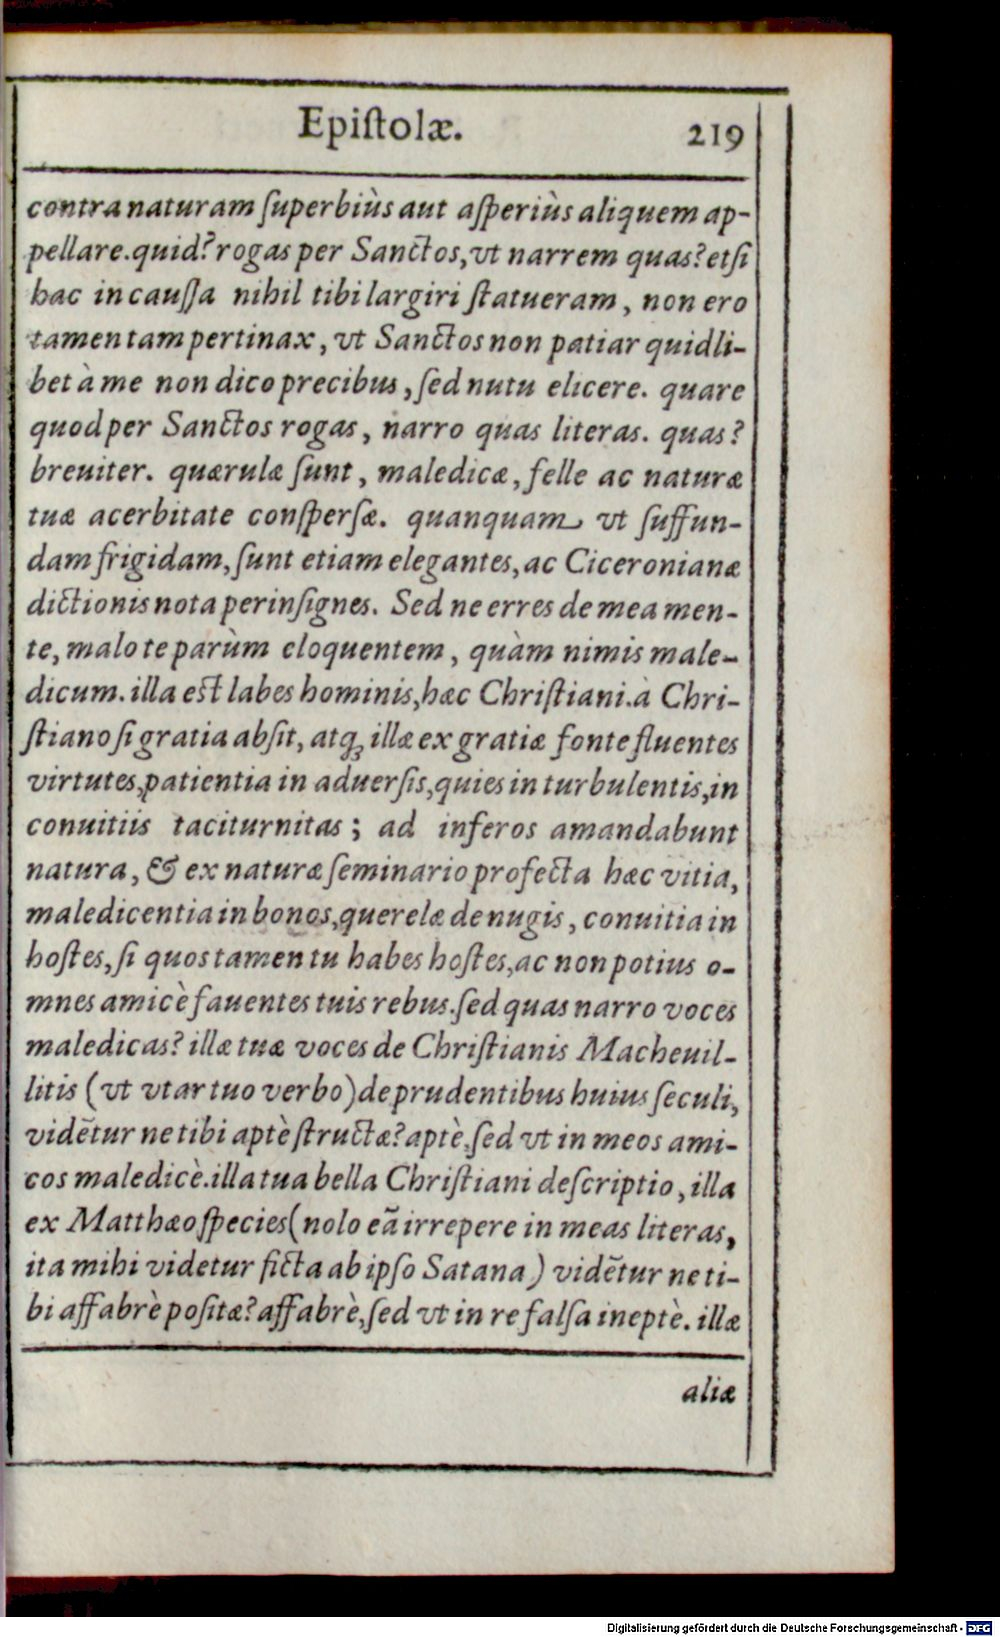 Epiſtolæ. 219
contra naturam ſuperbiùs aut aſperiùs aliquem ap-
pellare. quid? rogas per Sanctos, vt narrem quas? etſi
hac in cauſſa nihil tibi largiri ſtatueram, non ero
tamen tam pertinax, vt Sanctos non patiar quidli-
bet à me non dico precibus, ſed nutu elicere. quare
quod per Sanctos rogas, narro quas literas. quas?
breuiter. quærulæ ſunt, maledicæ, felle ac naturæ
tuæ acerbitate conſperſæ. quanquam vt ſuffun-
dam frigidam, ſunt etiam elegantes, ac Ciceronianæ
dictionis nota perinſignes. Sed ne erres de mea men-
te, malo te parùm eloquentem, quàm nimis male-
dicum. illa eſt labes hominis, hæc Chriſtiani. à Chri-
ſtiano ſi gratia abſit, atqꝫ illæ ex gratiæ fonte fluentes
virtutes, patientia in aduerſis, quies in turbulentis, in
conuitiis taciturnitas; ad inferos amandabunt
natura, & ex naturæ ſeminario profecta hæc vitia,
maledicentia in bonos, querelæ de nugis, conuitia in
hoſtes, ſi quos tamen tu habes hoſtes, ac non potius o-
mnes amicè fauentes tuis rebus. ſed quas narro voces
maledicas? illæ tuæ voces de Chriſtianis Macheuil-
litis (vt vtar tuo verbo) de prudentibus huius ſeculi,
vidẽtur ne tibi aptè ſtructæ? aptè, ſed vt in meos ami-
cos maledicè. illa tua bella Chriſtiani deſcriptio, illa
ex Matthæo ſpecies (nolo eã irrepere in meas literas,
ita mihi videtur ficta ab ipſo Satana) vidẽtur ne ti-
bi affabrè poſitæ? affabrè, ſed vt in re falſa ineptè. illæ
aliæ
Digitalisierung gefördert durch die Deutsche Forschungsgemeinschaft - DFG